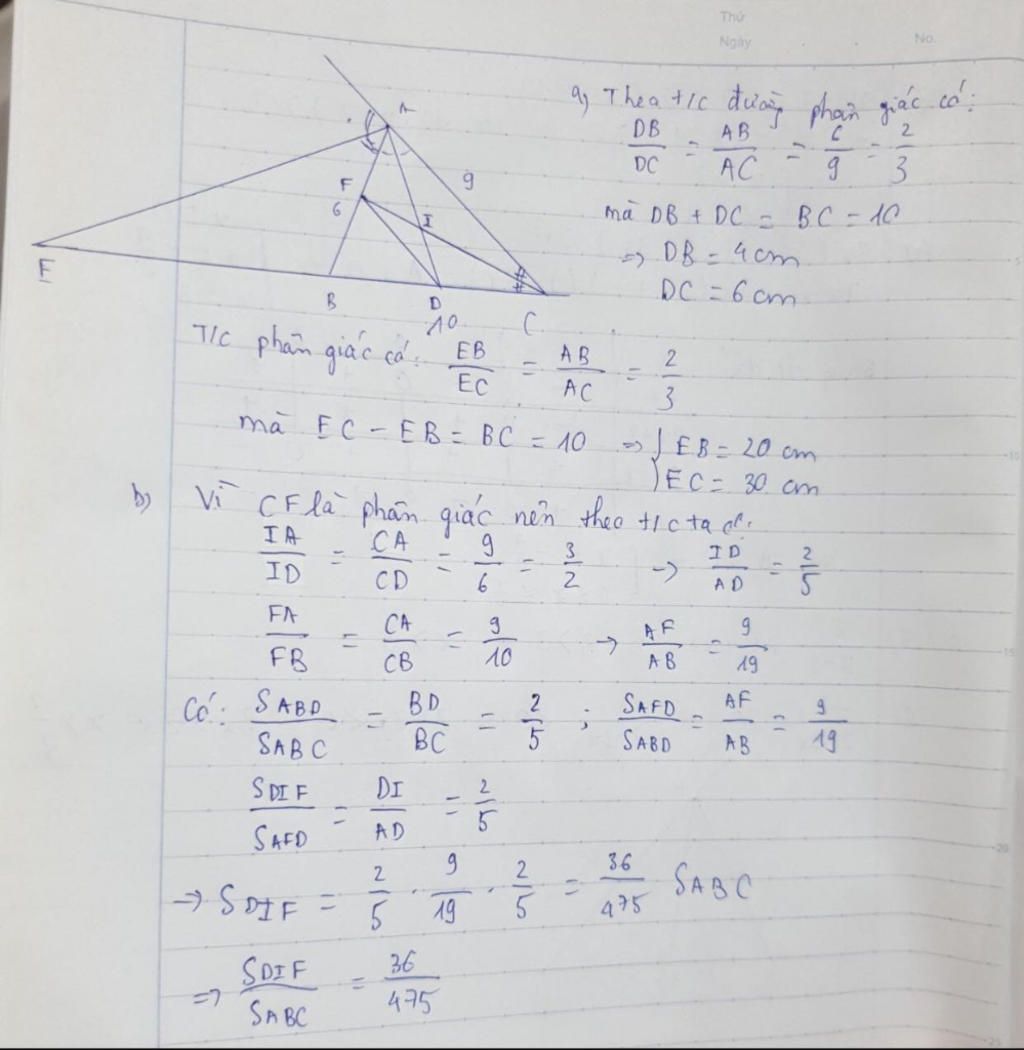 Thứ
Ngày No.
A
F
6
9
I
E
B
D
10
C
a) Theo t/c đường phân giác có:
DB/DC = AB/AC = 6/9 = 2/3
mà DB + DC = BC = 10
=> DB = 4 cm
DC = 6 cm
T/C phân giác có: EB/EC = AB/AC = 2/3
mà EC - EB = BC = 10 => { EB = 20 cm
EC = 30 cm
b) Vì CF là phân giác nên theo t/c ta có:
IA/ID = CA/CD = 9/6 = 3/2 -> ID/AD = 2/5
FA/FB = CA/CB = 9/10 -> AF/AB = 9/19
Có: SABD/SABC = BD/BC = 2/5 ; SAFD/SABD = AF/AB = 9/19
SDIF/SAFD = DI/AD = 2/5
-> SDIF = 2/5 . 9/19 . 2/5 = 36/475 SABC
=> SDIF/SABC = 36/475